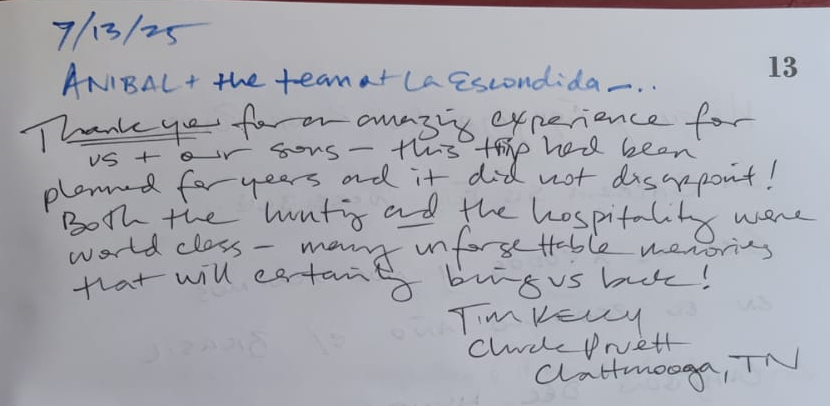 7/13/25
13
ANIBAL + the team at La Escondida -..
Thank you for an amazing experience for
us + our sons - this trip had been
planned for years and it did not disappoint!
Both the hunting and the hospitality were
world class - many unforgettable memories
that will certainly bring us back!
Tim Kelly
Pruett
Chattanooga, TN